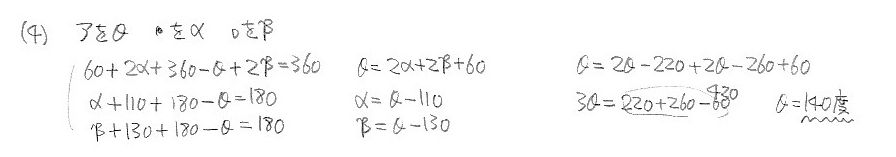 (4) アをθ •をα ○をβ
60+2α+360-θ+2β=360 θ=2α+2β+60 θ=2θ-220+2θ-260+60
α+110+180-θ=180 α=θ-110 3θ=220+260-60 420 θ=140度
β+130+180-θ=180 β=θ-130